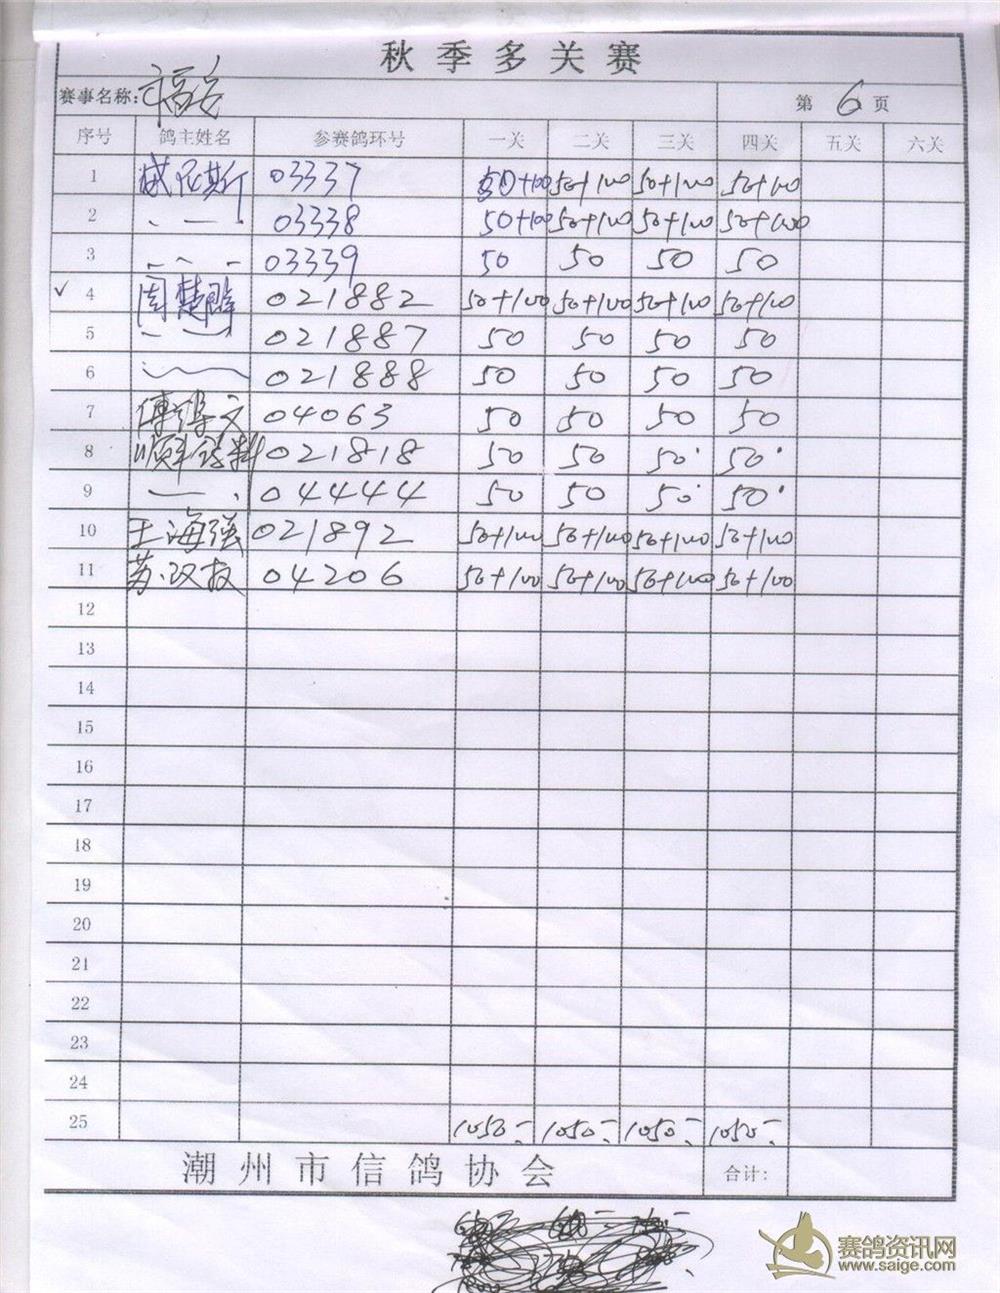 秋季多关赛
赛事名称: 福安 第 6 页
序号 鸽主姓名 参赛鸽环号 一关 二关 三关 四关 五关 六关
1 威尼斯 03337 50+100 50+100 50+100 50+100
2 03338 50+100 50+100 50+100 50+100
3 03339 50 50 50 50
✓ 4 周楚鹏 021882 50+100 50+100 50+100 50+100
5 021887 50 50 50 50
6 021888 50 50 50 50
7 文 04063 50 50 50 50
8 顺丰饲料 021818 50 50 50 50
9 04444 50 50 50 50
10 王海强 021892 50+100 50+100 50+100 50+100
11 苏汉 04206 50+100 50+100 50+100 50+100
12
13
14
15
16
17
18
19
20
21
22
23
24
25 1050 1050 1050 1050
潮州市信鸽协会 合计:
赛鸽资讯网
www.saige.com